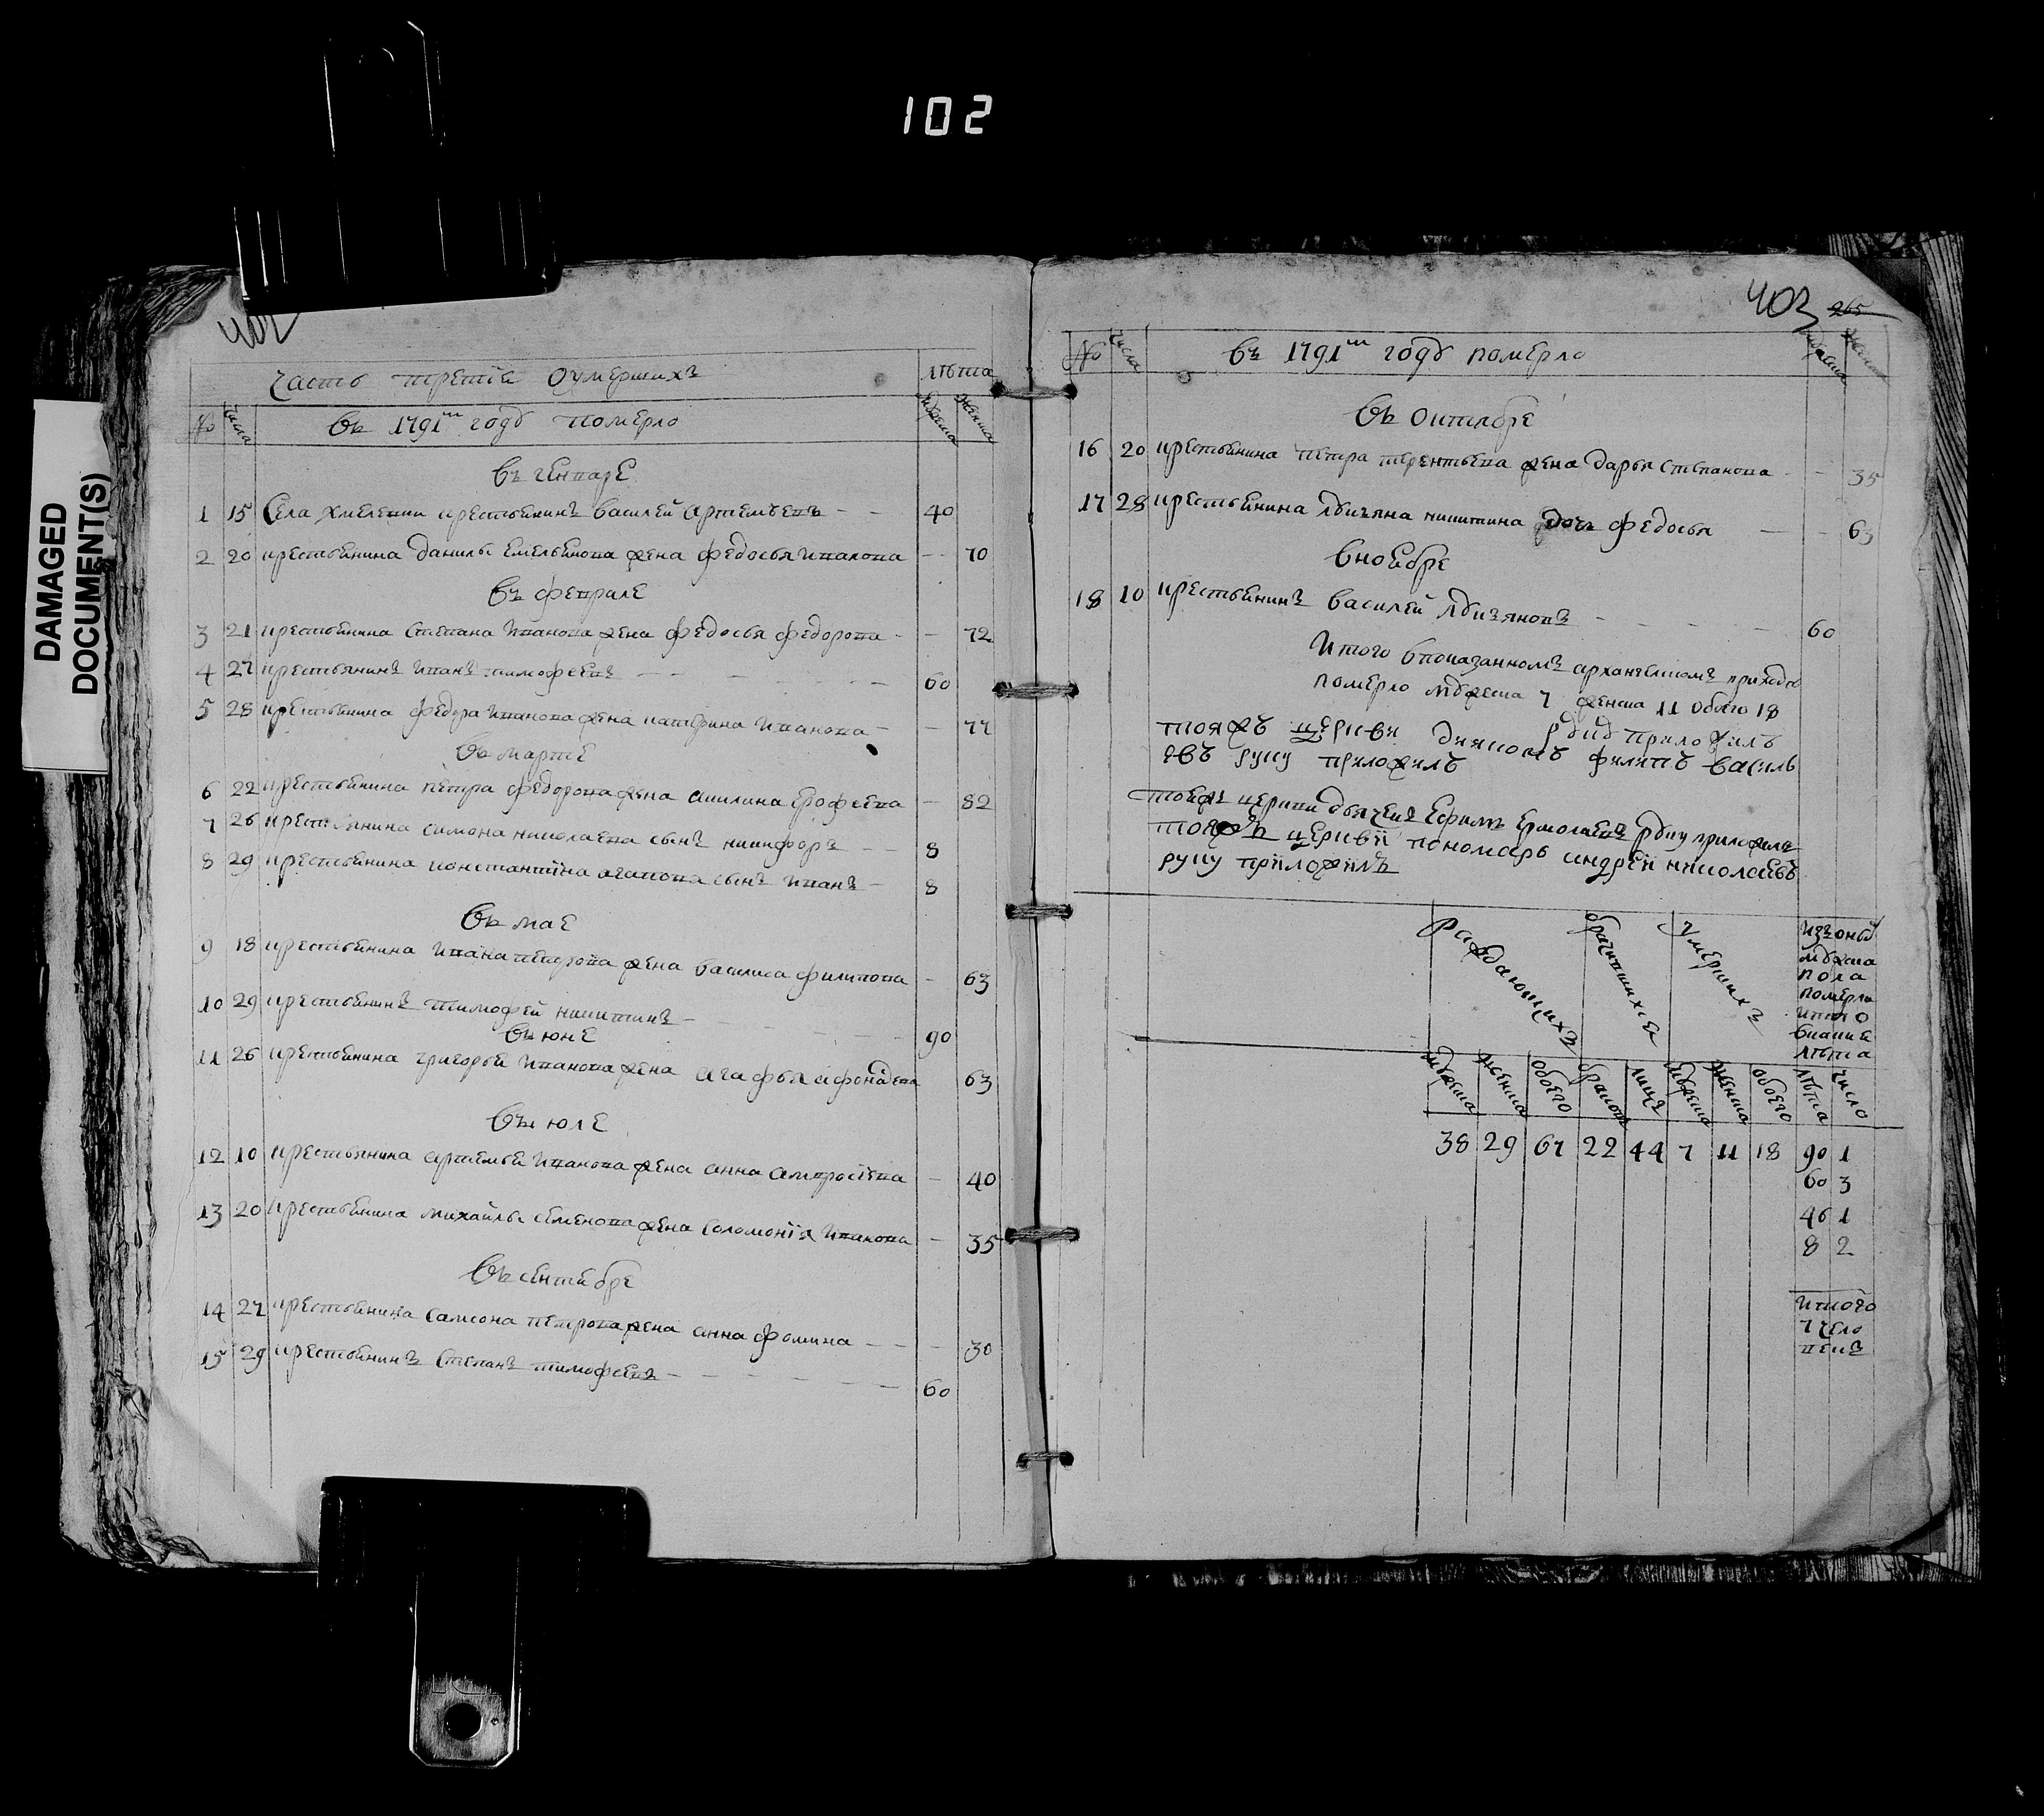 102
DAMAGED
DOCUMENT(S)
402
часть третїя оумершихъ
лѣта
№ числа въ 1791м году померло мужеска женска
въ генваре
1 15 Села хмелевки крестьянинъ василей артемьевъ 40
2 20 крестьянина данилы емельянова жена федосья иванова 70
въ феврале
3 21 крестьянина степана иванова жена федосья федорова 72
4 27 крестьянинъ иванъ тимофеевъ 60
5 28 крестьянина федора иванова жена катерина иванова 77
въ марте
6 22 крестьянина петра федорова жена акилина ерофеева 82
7 26 крестьянина симона николаева сынъ никифоръ 8
8 29 крестьянина константина агапова сынъ иванъ 8
въ мае
9 18 крестьянина ивана петрова жена василиса филипова 63
10 29 крестьянинъ тимофей никитинъ 90
въ июне
11 26 крестьянина григорья иванова жена агафья 63
въ июле
12 10 крестьянина артемья иванова жена анна амвросїева 40
13 20 крестьянина михайлы семенова жена соломонїя иванова 35
въ сентябре
14 27 крестьянина самсона петрова жена анна фомина 30
15 29 крестьянинъ степанъ тимофеевъ 60
403 265
№ числа въ 1791м году померло мужеска женска
въ октябре
16 20 крестьянина петра терентьева жена дарья степанова 35
17 28 крестьянина лукьяна никитина дочь федосья 63
в ноябре
18 10 крестьянинъ василей лукьяновъ 60
Итого в показанномъ архангелскомъ приходе
померло мужеска 7 женска 11 обоего 18
тояжъ церкви дияконъ филипъ василь
евъ руку приложилъ
руку приложилъ
тоежъ церкви дьячекъ Ефимъ Ермолаевъ руку приложилъ
тояжъ церквїи пономарь андрей николаевъ
руку приложилъ
раждающихъ
брачившихся
умершихъ
изъ оныхъ
мужеска
пола
померло
лѣта
мужеска женска обоего браковъ лицъ мужеска женска обоего лѣта число
38 29 67 22 44 7 11 18 90 1
60 3
40 1
8 2
итого
7 чело
векъ